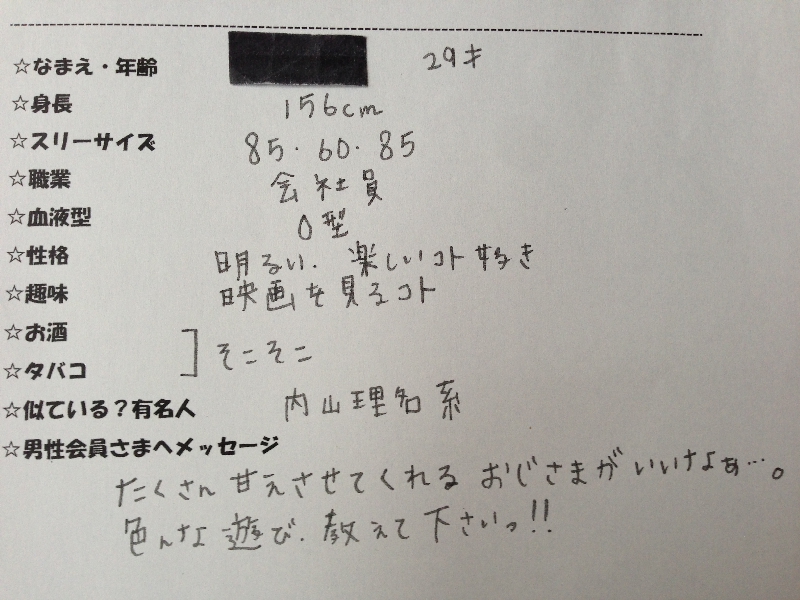 ☆なまえ・年齢 29才
☆身長 156cm
☆スリーサイズ 85・60・85
☆職業 会社員
☆血液型 O型
☆性格 明るい、楽しいコト好き
☆趣味 映画を見るコト
☆お酒
☆タバコ ]そこそこ
☆似ている?有名人 内山理名系
☆男性会員さまへメッセージ
たくさん甘えさせてくれるおじさまがいいなぁ…。
色んな遊び、教えて下さいっ!!